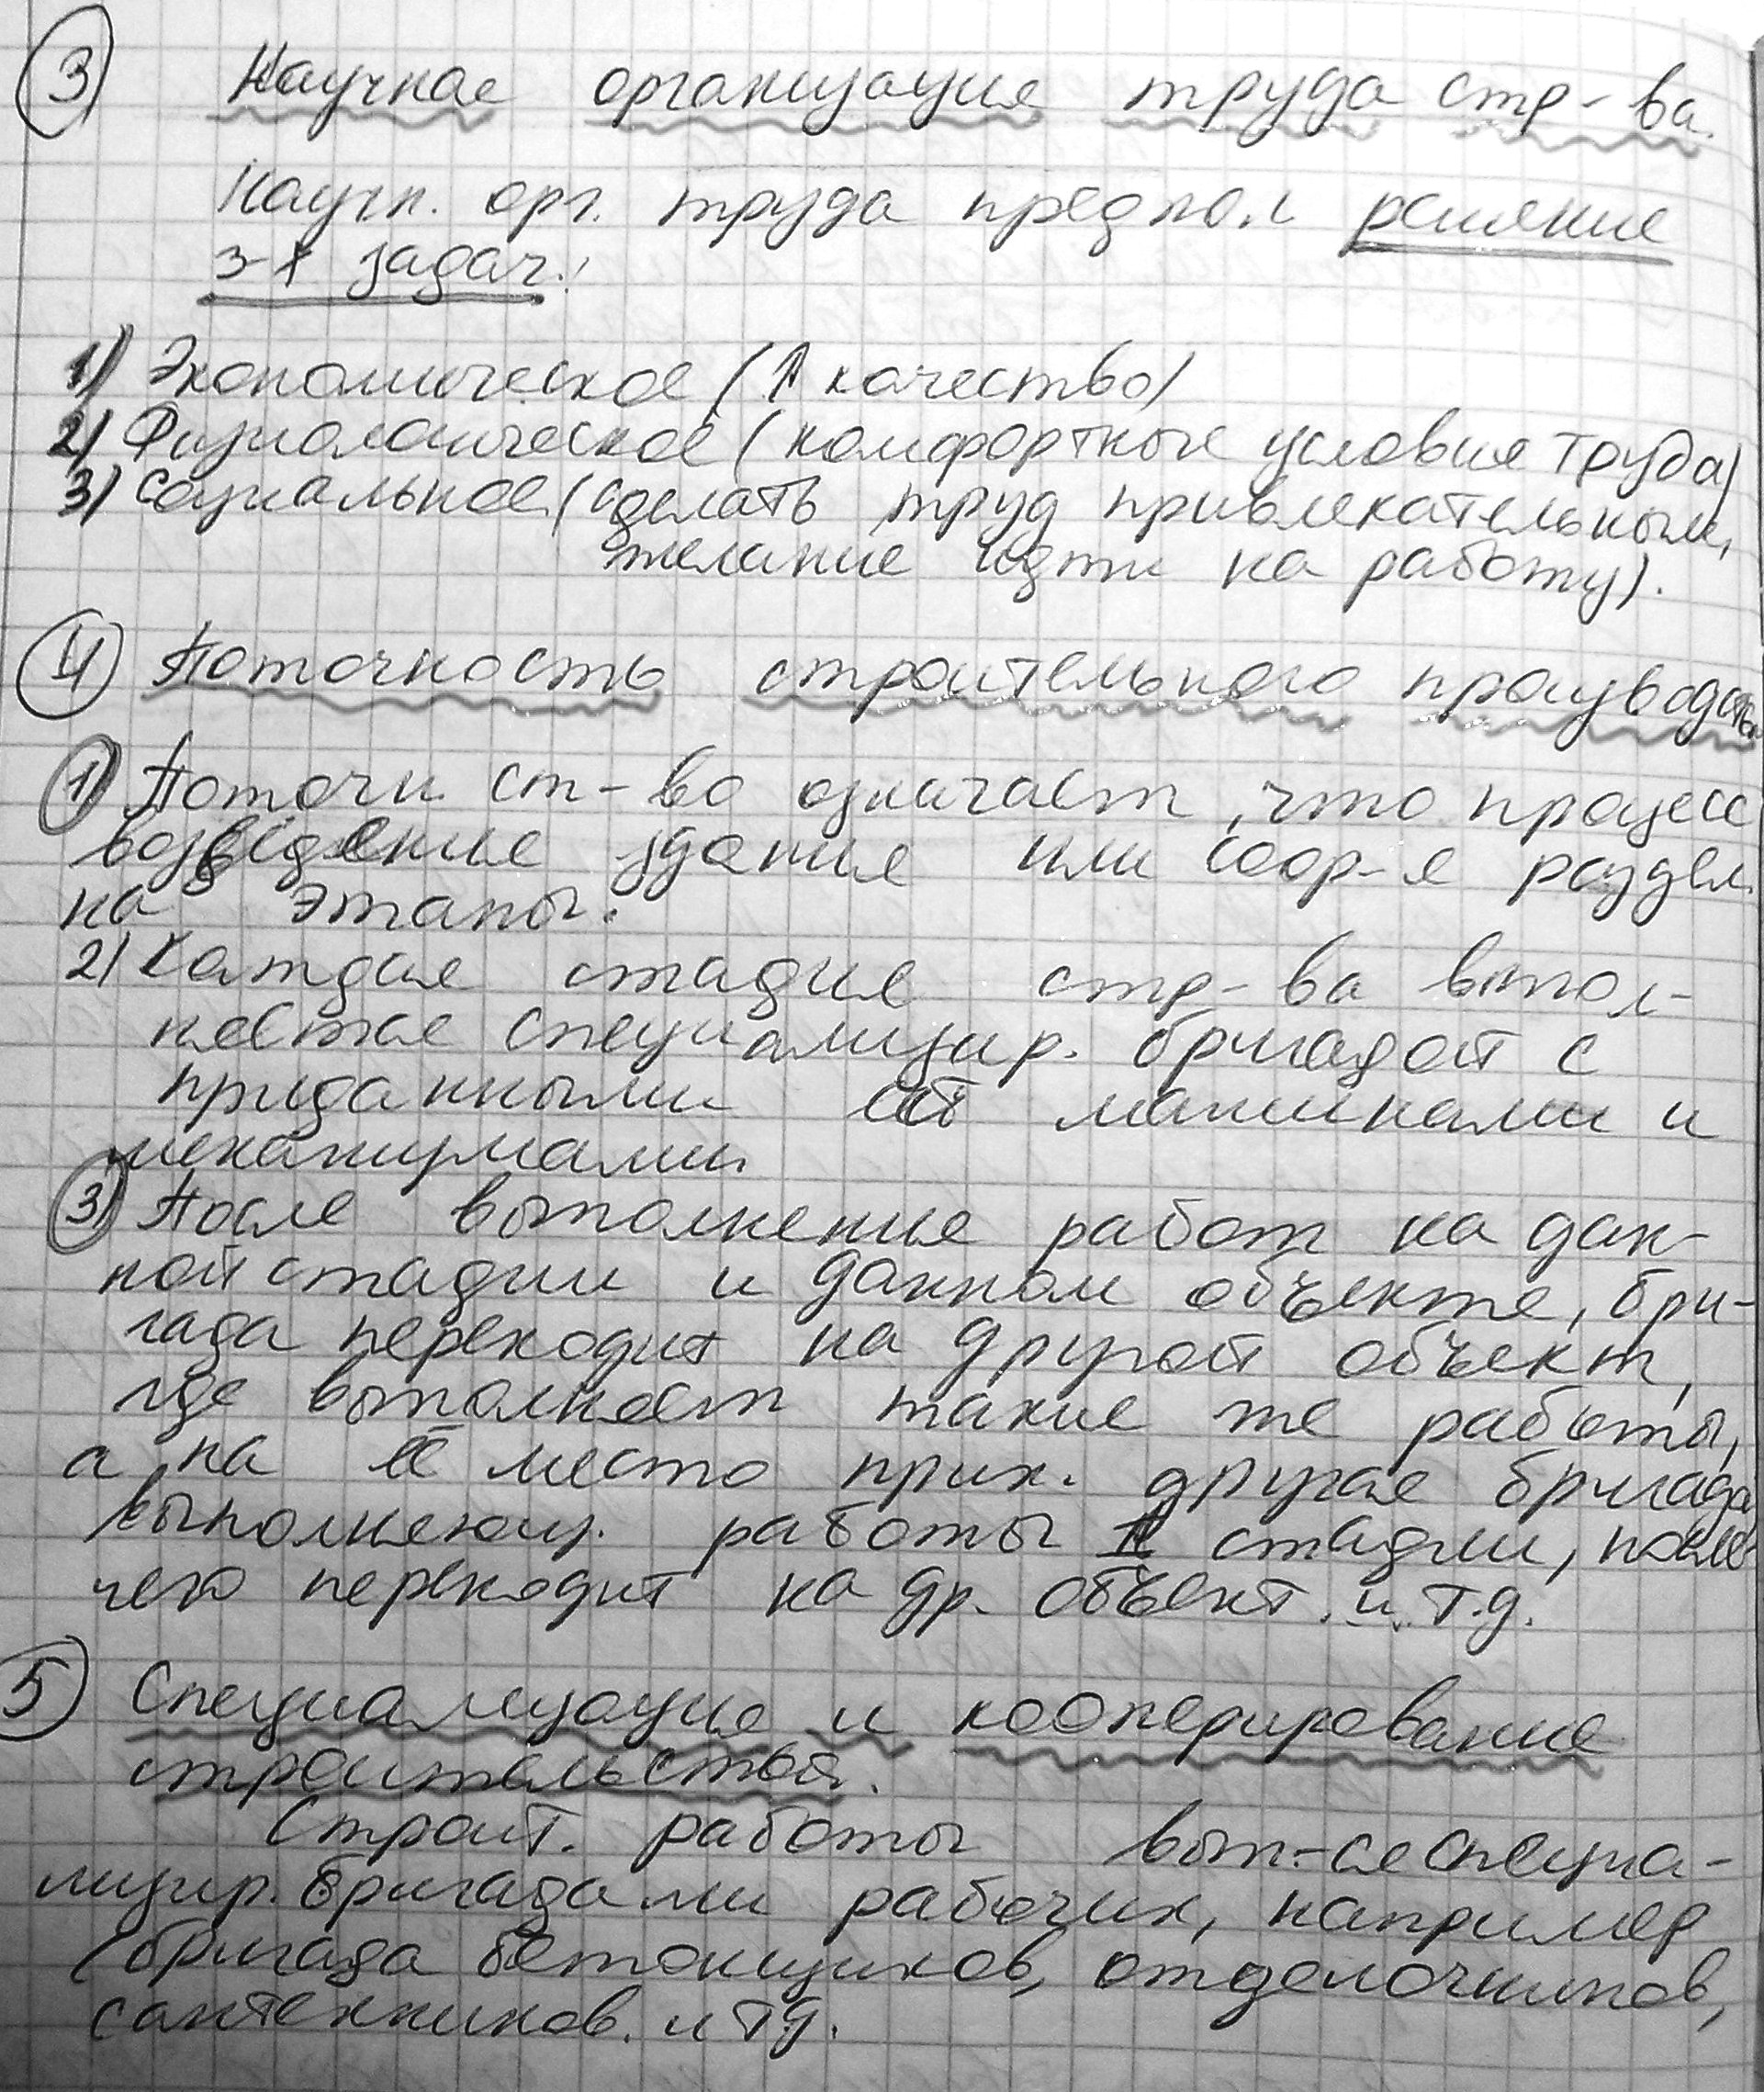 3 Научная организация труда стр-ва.
Научн. орг. труда предпол решение
3-х задач:
1) Экономическое (↑ качество)
2) Физиологическое (комфортные условия труда)
3) Социальное (сделать труд привлекательным,
желание идти на работу).
4 Поточность строительного производства
1) Поточн ст-во означает, что процесс
возведения здания или соор-я раздел.
на этапы.
2) Каждая стадия стр-ва выпол-
няется специализир. бригадой с
приданными ей машинами и
механизмами
3) После выполнения работ на дан-
ной стадии и данном объекте, бри-
гада переходит на другой объект,
где выполняет такие же работы,
а на её место прих. другая бригада
выполняющ. работы стадии, после
чего переходит на др. объект. и т.д.
5 Специализация и кооперирование
строительства.
Строит. работы вып-ся специа-
лизир. бригадами рабочих, например
(бригада бетонщиков, отделочников,
сантехников. и тд.